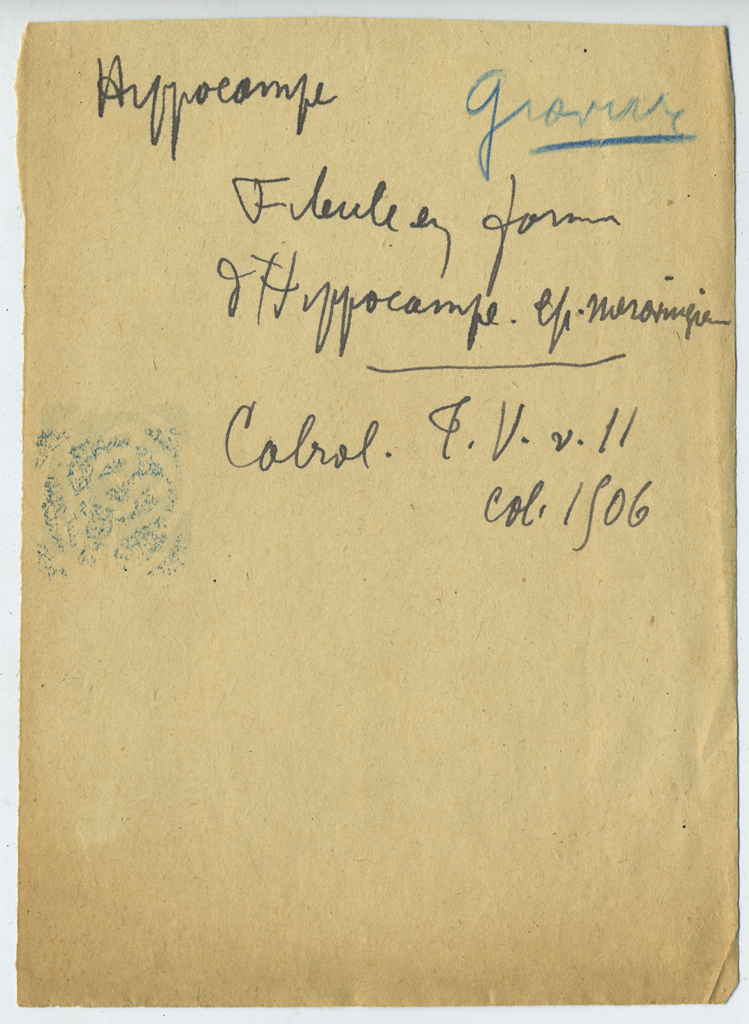 Hippocampe
Gravure
Fibule en forme
d'Hippocampe. ép. merovingien
Cabrol. T. V. v. 11
col. 1506